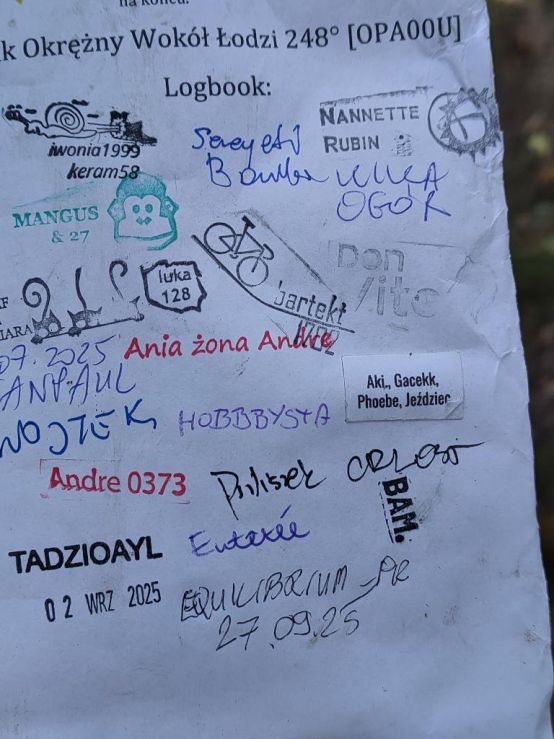 na końcu.
k Okrężny Wokół Łodzi 248° [OPA00U]
Logbook:
iwonia1999
keram58
NANNETTE
RUBIN
OGOR
MANGUS
& 27
luka
128
bartekt
Don
Vito
07.2025
Ania żona Andre
Aki,, Gacekk,
Phoebe, Jeździec
WOJTEK
HOBBBYSTA
Andre 0373
BAM.
TADZIOAYL
02 WRZ 2025
EQUILIBRIUM_PR
27.09.25